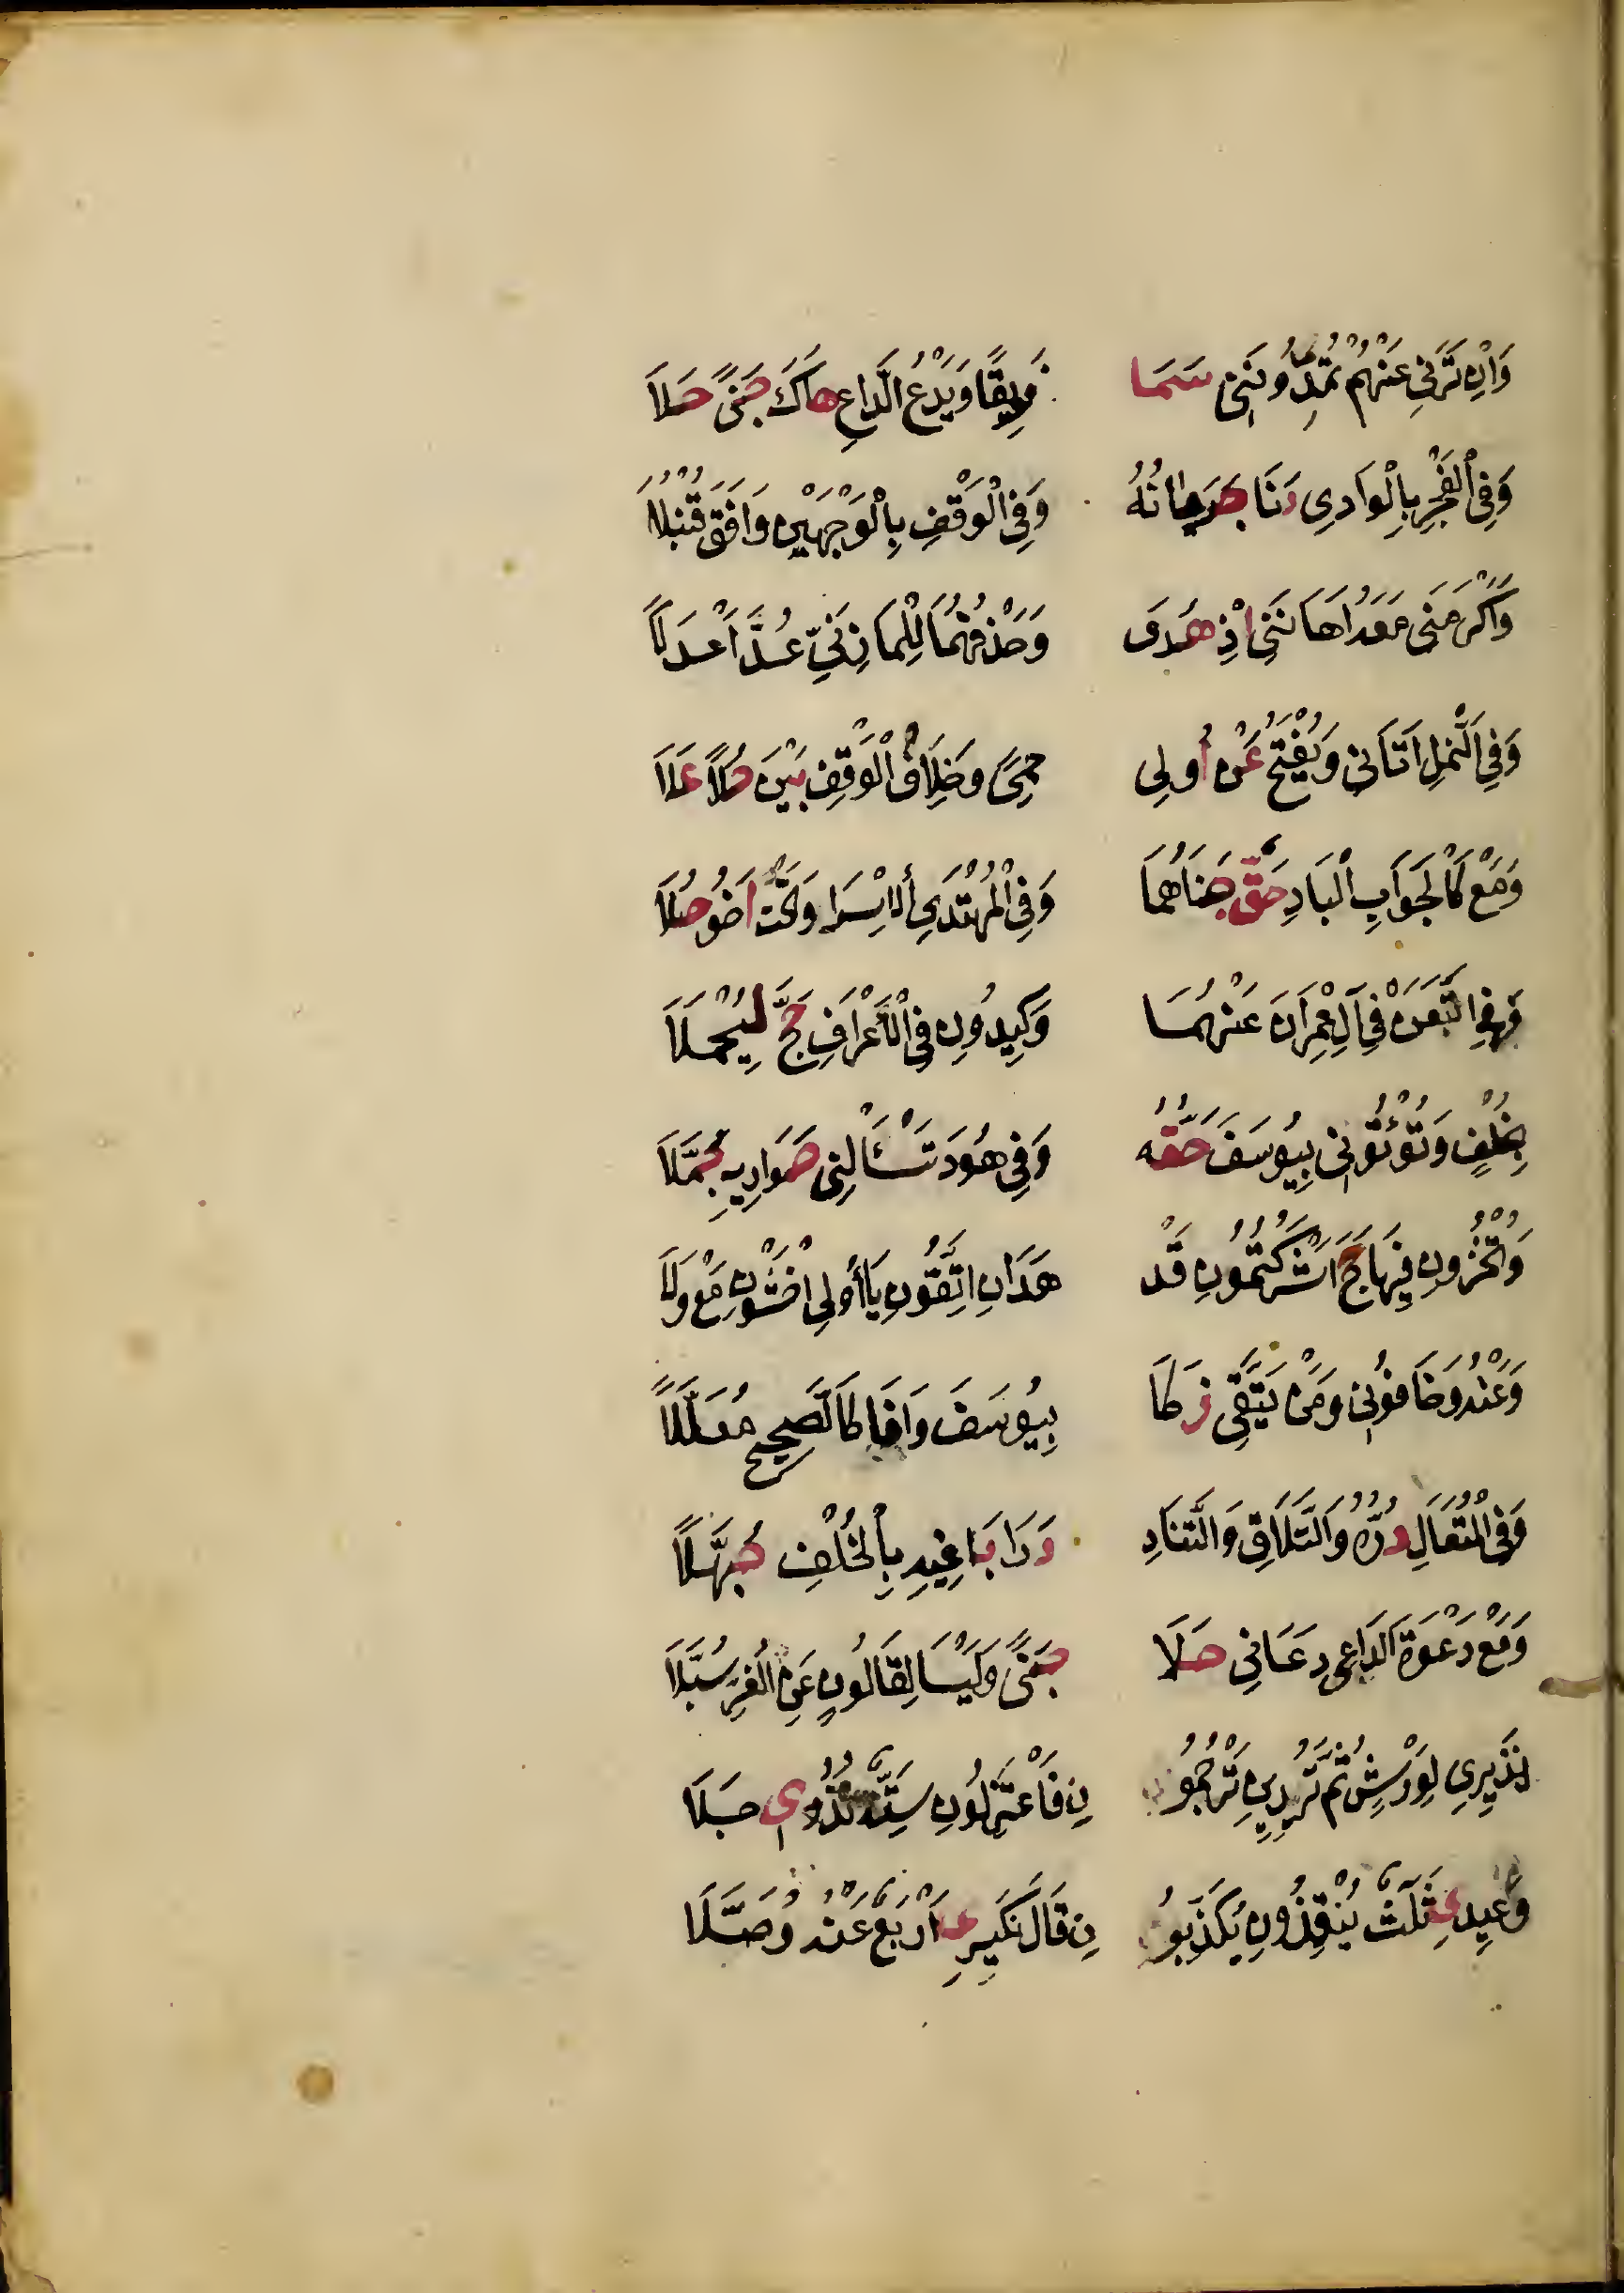 وَاِنْ تَرَنِي عَنْهُمْ تُمِدُّونَنِي سَمَا فَرِيقًا وَيَدْعُ الدَّاعِ هَاكَ جَنًى حَلَا
وَفِي الْفَجْرِ بِالْوَادِي دَنَا جَرَيَانُهُ وَفِي الْوَقْفِ بِالْوَجْهَيْنِ وَافَقَ قُنْبُلَا
وَاَكْرَمَنِي مَعَهُ اَهَانَنِي اِذْ هَدَى وَحَذْفُهُمَا لِلْمَازِنِيِّ عُدَّ اَعْدَلَا
وَفِي النَّمْلِ اٰتَانِي وَيُفْتَحُ عَنْ أُولِي حِمًى وَخِلَافُ الْوَقْفِ بَيْنَ حُلًا عَلَا
وَمَعْ كَالْجَوَابِ الْبَادِ حَقَّ جَنَاهُمَا وَفِي الْمُهْتَدِي الْاِسْرَا وَتَحْتُ اَخُو حُلَا
وَفِي اتَّبَعَنْ فِي آلِ عِمْرَانَ عَنْهُمَا وَكِيدُونِ فِي الْأَعْرَافِ حَجَّ لِيُحْمَلَا
بِخُلْفٍ وَتُؤْتُونِي بِيُوسُفَ حَقُّهُ وَفِي هُودَ تَسْئَالْنِي حَوَارِيهِ جَمَّلَا
وَتُخْزُونِ فِيهَا حَجَّ اَشْرَكْتُمُونِ قَدْ هَدَانِ اتَّقُونِ يَا أُولِي اخْشَوْنِ مَعْ وَلَا
وَعَنْهُ وَخَافُونِي وَمَنْ يَتَّقِي زَكَا بِيُوسُفَ وَافَا كَالصَّحِيحِ مُعَلَّلَا
وَفِي الْمُتَعَالِ دُرُّهُ وَالتَّلَاقِ وَالتَّنَادِ دَرَا بَاغِيهِ بِالْخُلْفِ جُهَّلَا
وَمَعْ دَعْوَةَ الدَّاعِي دَعَانِي حَلَا جَنًى وَلَيْسَا لِقَالُونٍ عَنِ الْغُرِّ سُبَّلَا
نَذِيرِي لِوَرْشٍ ثُمَّ تُرْدِينِ تَرْجُمُو نِ فَاعْتَزِلُونِ سِتَّةٌ نُذُرِي جَلَا
وَعِيدِي ثَلَاثٌ يُنْقِذُونِ يُكَذِّبُو نِ قَالَ نَكِيرِي اَرْبَعٌ عَنْهُ وُصِّلَا